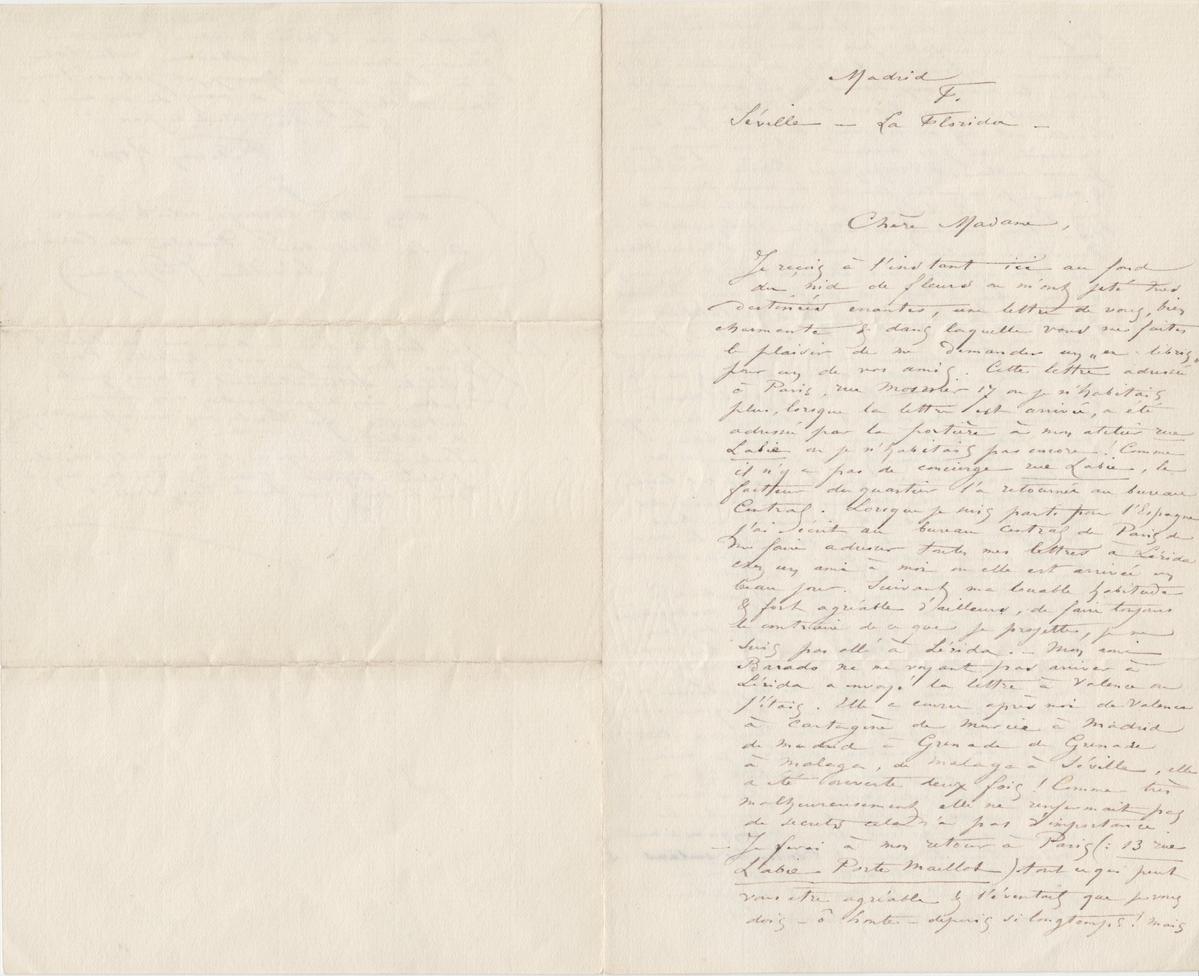 Madrid
F.
Séville — La Florida —
Chère Madame,
Je reçois à l'instant ici au fond
du nid de fleurs ou m'ont jeté très
destinées errantes, une lettre de vous, bien
charmante & dans laquelle vous me faites
le plaisir de me demander un „ex-libris„
pour un de vos amis. Cette lettre adressée
à Paris, rue Mosnier 17 ou je n'habitais
plus, lorsque la lettre est arrivée, a été
adressée par la portière à mon atelier rue
Labie ou je n'habitais pas encore! Comme
il n'y a pas de concierge rue Labie, le
facteur du quartier l'a retournée au bureau
Central. Lorsque je suis parti pour l'Espagne
j'ai écrit au bureau central de Paris de
me faire adresser toutes mes lettres à Lérida
chez un ami à moi ou elle est arrivée un
beau jour. Suivant ma louable habitude
& fort agréable d'ailleurs, de faire toujours
le contraire de ce que je projette, je ne
suis pas allé à Lérida. — Mon ami
Barado ne me voyant pas arriver à
Lérida a envoyé la lettre à Valence ou
j'étais. Elle a couru après moi de Valence
à Cartagène de Murcie à Madrid
de Madrid à Grenade de Grenade
à Malaga, de Malaga à Séville, elle
a été ouverte deux fois! Comme très
malheureusement elle ne renfermait pas
de secrets cela n'a pas d'importance
— Je ferai à mon retour à Paris (: 13 rue
Labie Porte Maillot) tout ce qui peut
vous être agréable & l'éventail que je vous
dois — ô honte — depuis si longtemps! Mais